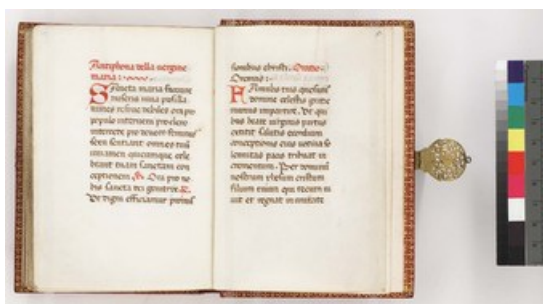 Antiphona della vergine
maria :
Sancta maria succurre
miseris iuva pusilla
nimes refove flebiles ora pro
populo interveni pro clero
intercede pro devoto femineo
sexu sentiant omnes tuu
iuvamen quicumque cele
brant tuam sanctam con
ceptionem. Ora pro no
bis sancta dei genitrix.
Ut digni efficiamur promis
sionibus christi. Oratio.
Oremus:
Famulis tuis quesumus
domine celestis gratie
munus impartire. Ut qui
bus beate virginis partus
extitit salutis exordium
conceptionis eius votiva so
lennitas pacis tribuat in
crementum. Per dominum
nostrum yhesum cristum
filium tuum qui tecum vi
vit et regnat in unitate